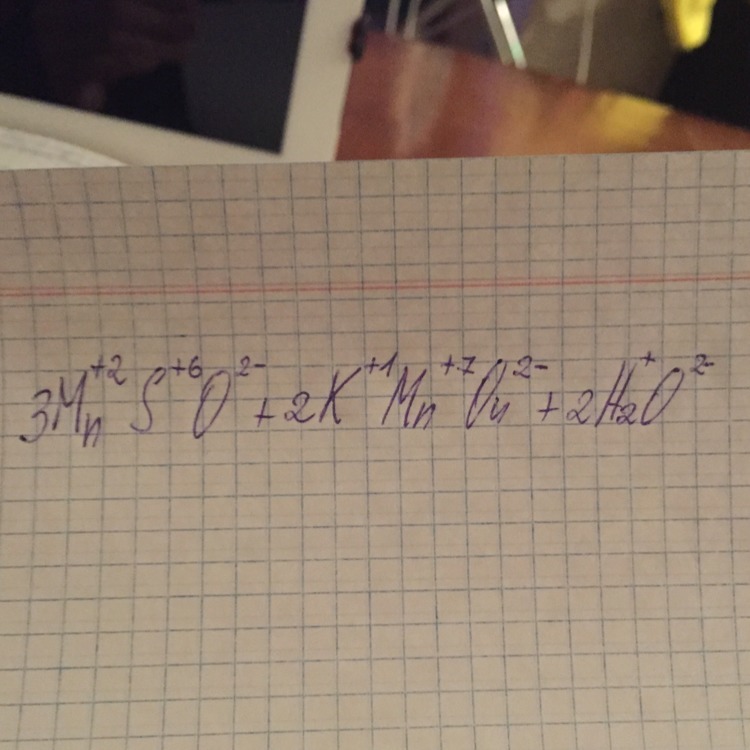 3Mn⁺²S⁺⁶O²⁻ + 2K⁺¹Mn⁺⁷O₄²⁻ + 2H₂⁺O²⁻